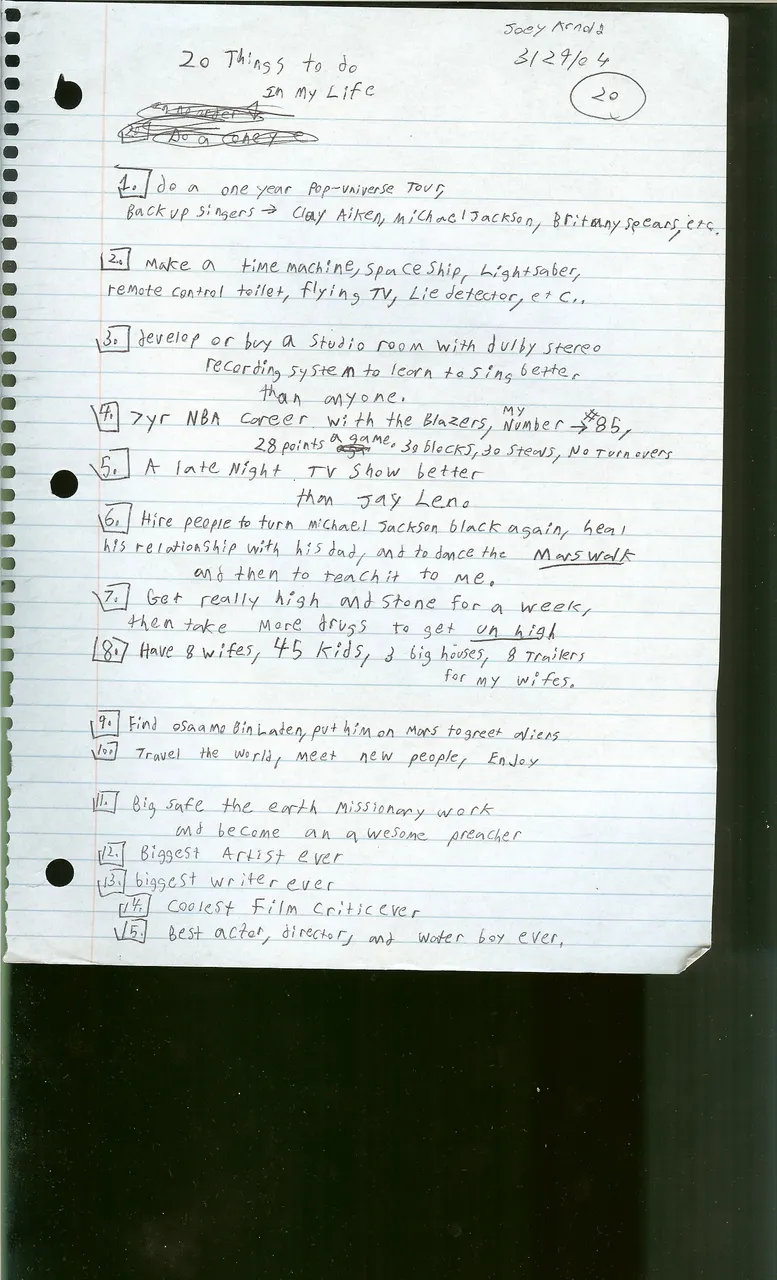 Joey Arnold
3/29/04
20 Things to do
In My Life
20
1. do a one year Pop-universe Tour,
Back up singers → Clay Aiken, Michael Jackson, Britany Spears, etc.
2. Make a time machine, space ship, Lightsaber,
remote control toilet, flying TV, Lie detector, etc..
3. develop or buy a studio room with dulby stereo
recording system to learn to sing better
than anyone.
4. 7yr NBA career with the Blazers, MY Number → #85,
28 points a game, 30 blocks, 30 steals, No Turnovers
5. A late Night TV Show better
than Jay Leno
6. Hire people to turn Michael Jackson black again, heal
his relationship with his dad, and to dance the Mars walk
and then to teach it to me.
7. Get really high and stone for a week,
then take more drugs to get un high
8. Have 8 wifes, 45 kids, 3 big houses, 8 Trailers
for my wifes.
9. Find osaama Bin Laden, put him on Mars to greet aliens
10. Travel the world, meet new people, Enjoy
11. Big safe the earth Missionary work
and become an awesome preacher
12. Biggest Artist ever
13. biggest writer ever
14. Coolest Film Critic ever
15. Best actor, director, and water boy ever.